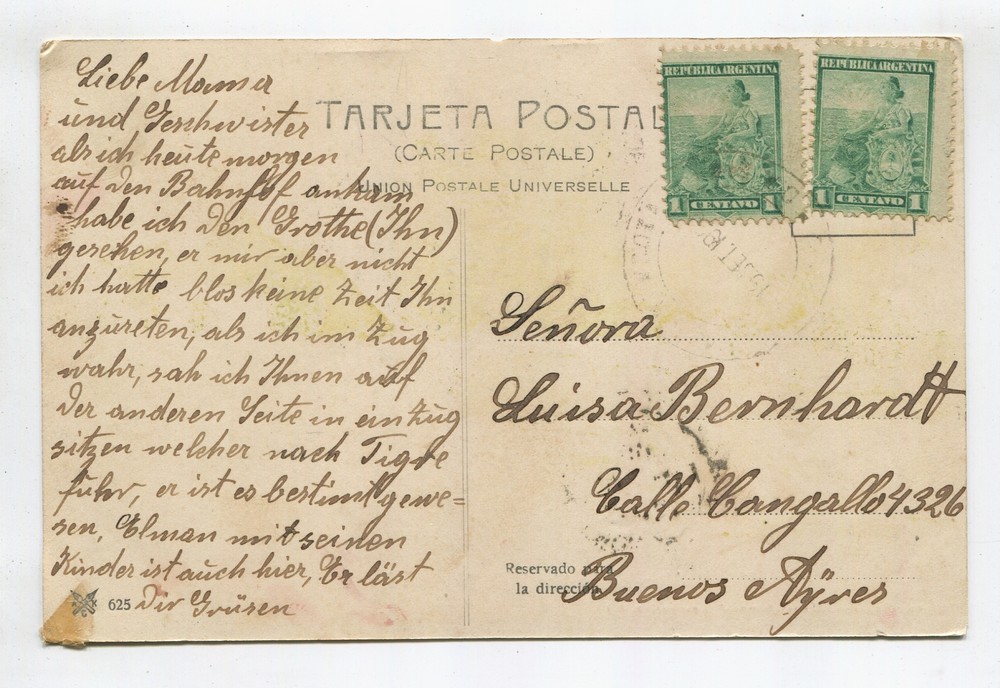 Liebe Mama
und Geschwister
als ich heute morgen
auf den Bahnhof ankam
habe ich den Grothe (Ihn)
gesehen, er mir aber nicht
ich hatte blos keine Zeit Ihn
anzureten, als ich im Zug
wahr, sah ich Ihnen auf
der anderen Seite in ein Zug
sitzen welcher nach Tigre
fuhr, er ist es bestimt gewe=
sen, Elman mit seinen
Kinder ist auch hier, Er läst
Dir Grüsen
625
TARJETA POSTAL
(CARTE POSTALE)
UNION POSTALE UNIVERSELLE
REPUBLICA ARGENTINA
1 CENTAVO 1
REPUBLICA ARGENTINA
1 CENTAVO 1
Señora
Luisa Bernhardt
Calle Cangallo 4326
Buenos Ayres
Reservado para
la dirección